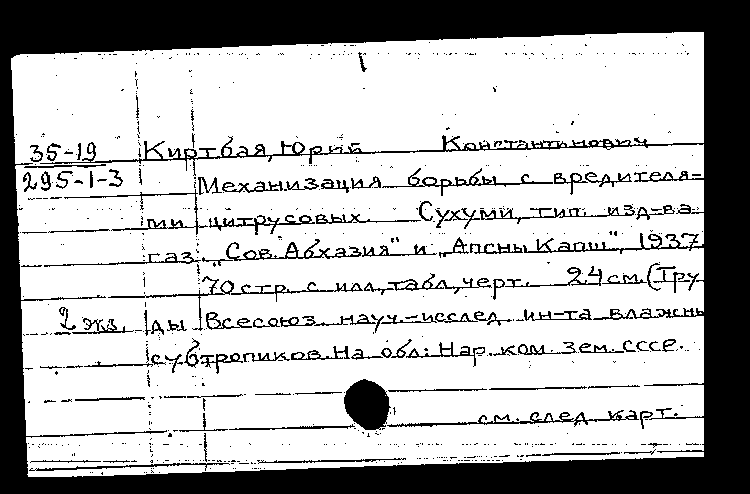 35-19 Киртбая, Юрий Константинович
295-1-3 Механизация борьбы с вредителя-
ми цитрусовых. Сухуми, тип. изд-ва
газ. „Сов. Абхазия" и „Апсны Капш", 1937.
70 стр. с илл., табл., черт. 24 см. (Тру
2 экз. ды Всесоюз. науч.-исслед. ин-та влажн
субтропиков. На обл: Нар. ком. зем. СССР.
см. след. карт.